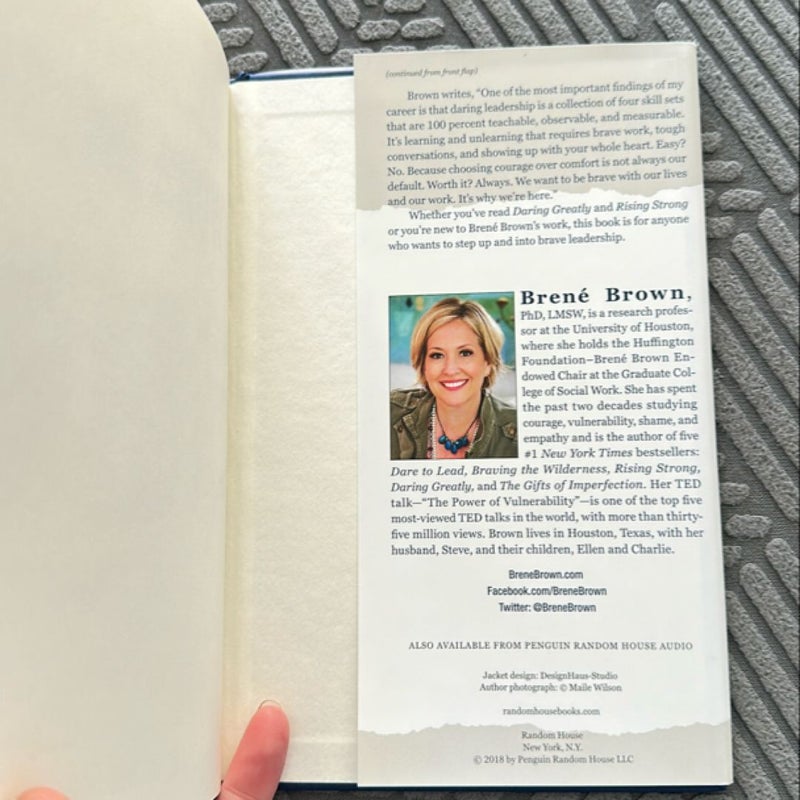 (continued from front flap)
Brown writes, “One of the most important findings of my
career is that daring leadership is a collection of four skill sets
that are 100 percent teachable, observable, and measurable.
It’s learning and unlearning that requires brave work, tough
conversations, and showing up with your whole heart. Easy?
No. Because choosing courage over comfort is not always our
default. Worth it? Always. We want to be brave with our lives
and our work. It’s why we’re here.”
Whether you’ve read Daring Greatly and Rising Strong
or you’re new to Brené Brown’s work, this book is for anyone
who wants to step up and into brave leadership.
Brené Brown,
PhD, LMSW, is a research profes-
sor at the University of Houston,
where she holds the Huffington
Foundation–Brené Brown En-
dowed Chair at the Graduate Col-
lege of Social Work. She has spent
the past two decades studying
courage, vulnerability, shame, and
empathy and is the author of five
#1 New York Times bestsellers:
Dare to Lead, Braving the Wilderness, Rising Strong,
Daring Greatly, and The Gifts of Imperfection. Her TED
talk—“The Power of Vulnerability”—is one of the top five
most-viewed TED talks in the world, with more than thirty-
five million views. Brown lives in Houston, Texas, with her
husband, Steve, and their children, Ellen and Charlie.
BreneBrown.com
Facebook.com/BreneBrown
Twitter: @BreneBrown
ALSO AVAILABLE FROM PENGUIN RANDOM HOUSE AUDIO
Jacket design: DesignHaus-Studio
Author photograph: © Maile Wilson
randomhousebooks.com
Random House
New York, N.Y.
© 2018 by Penguin Random House LLC